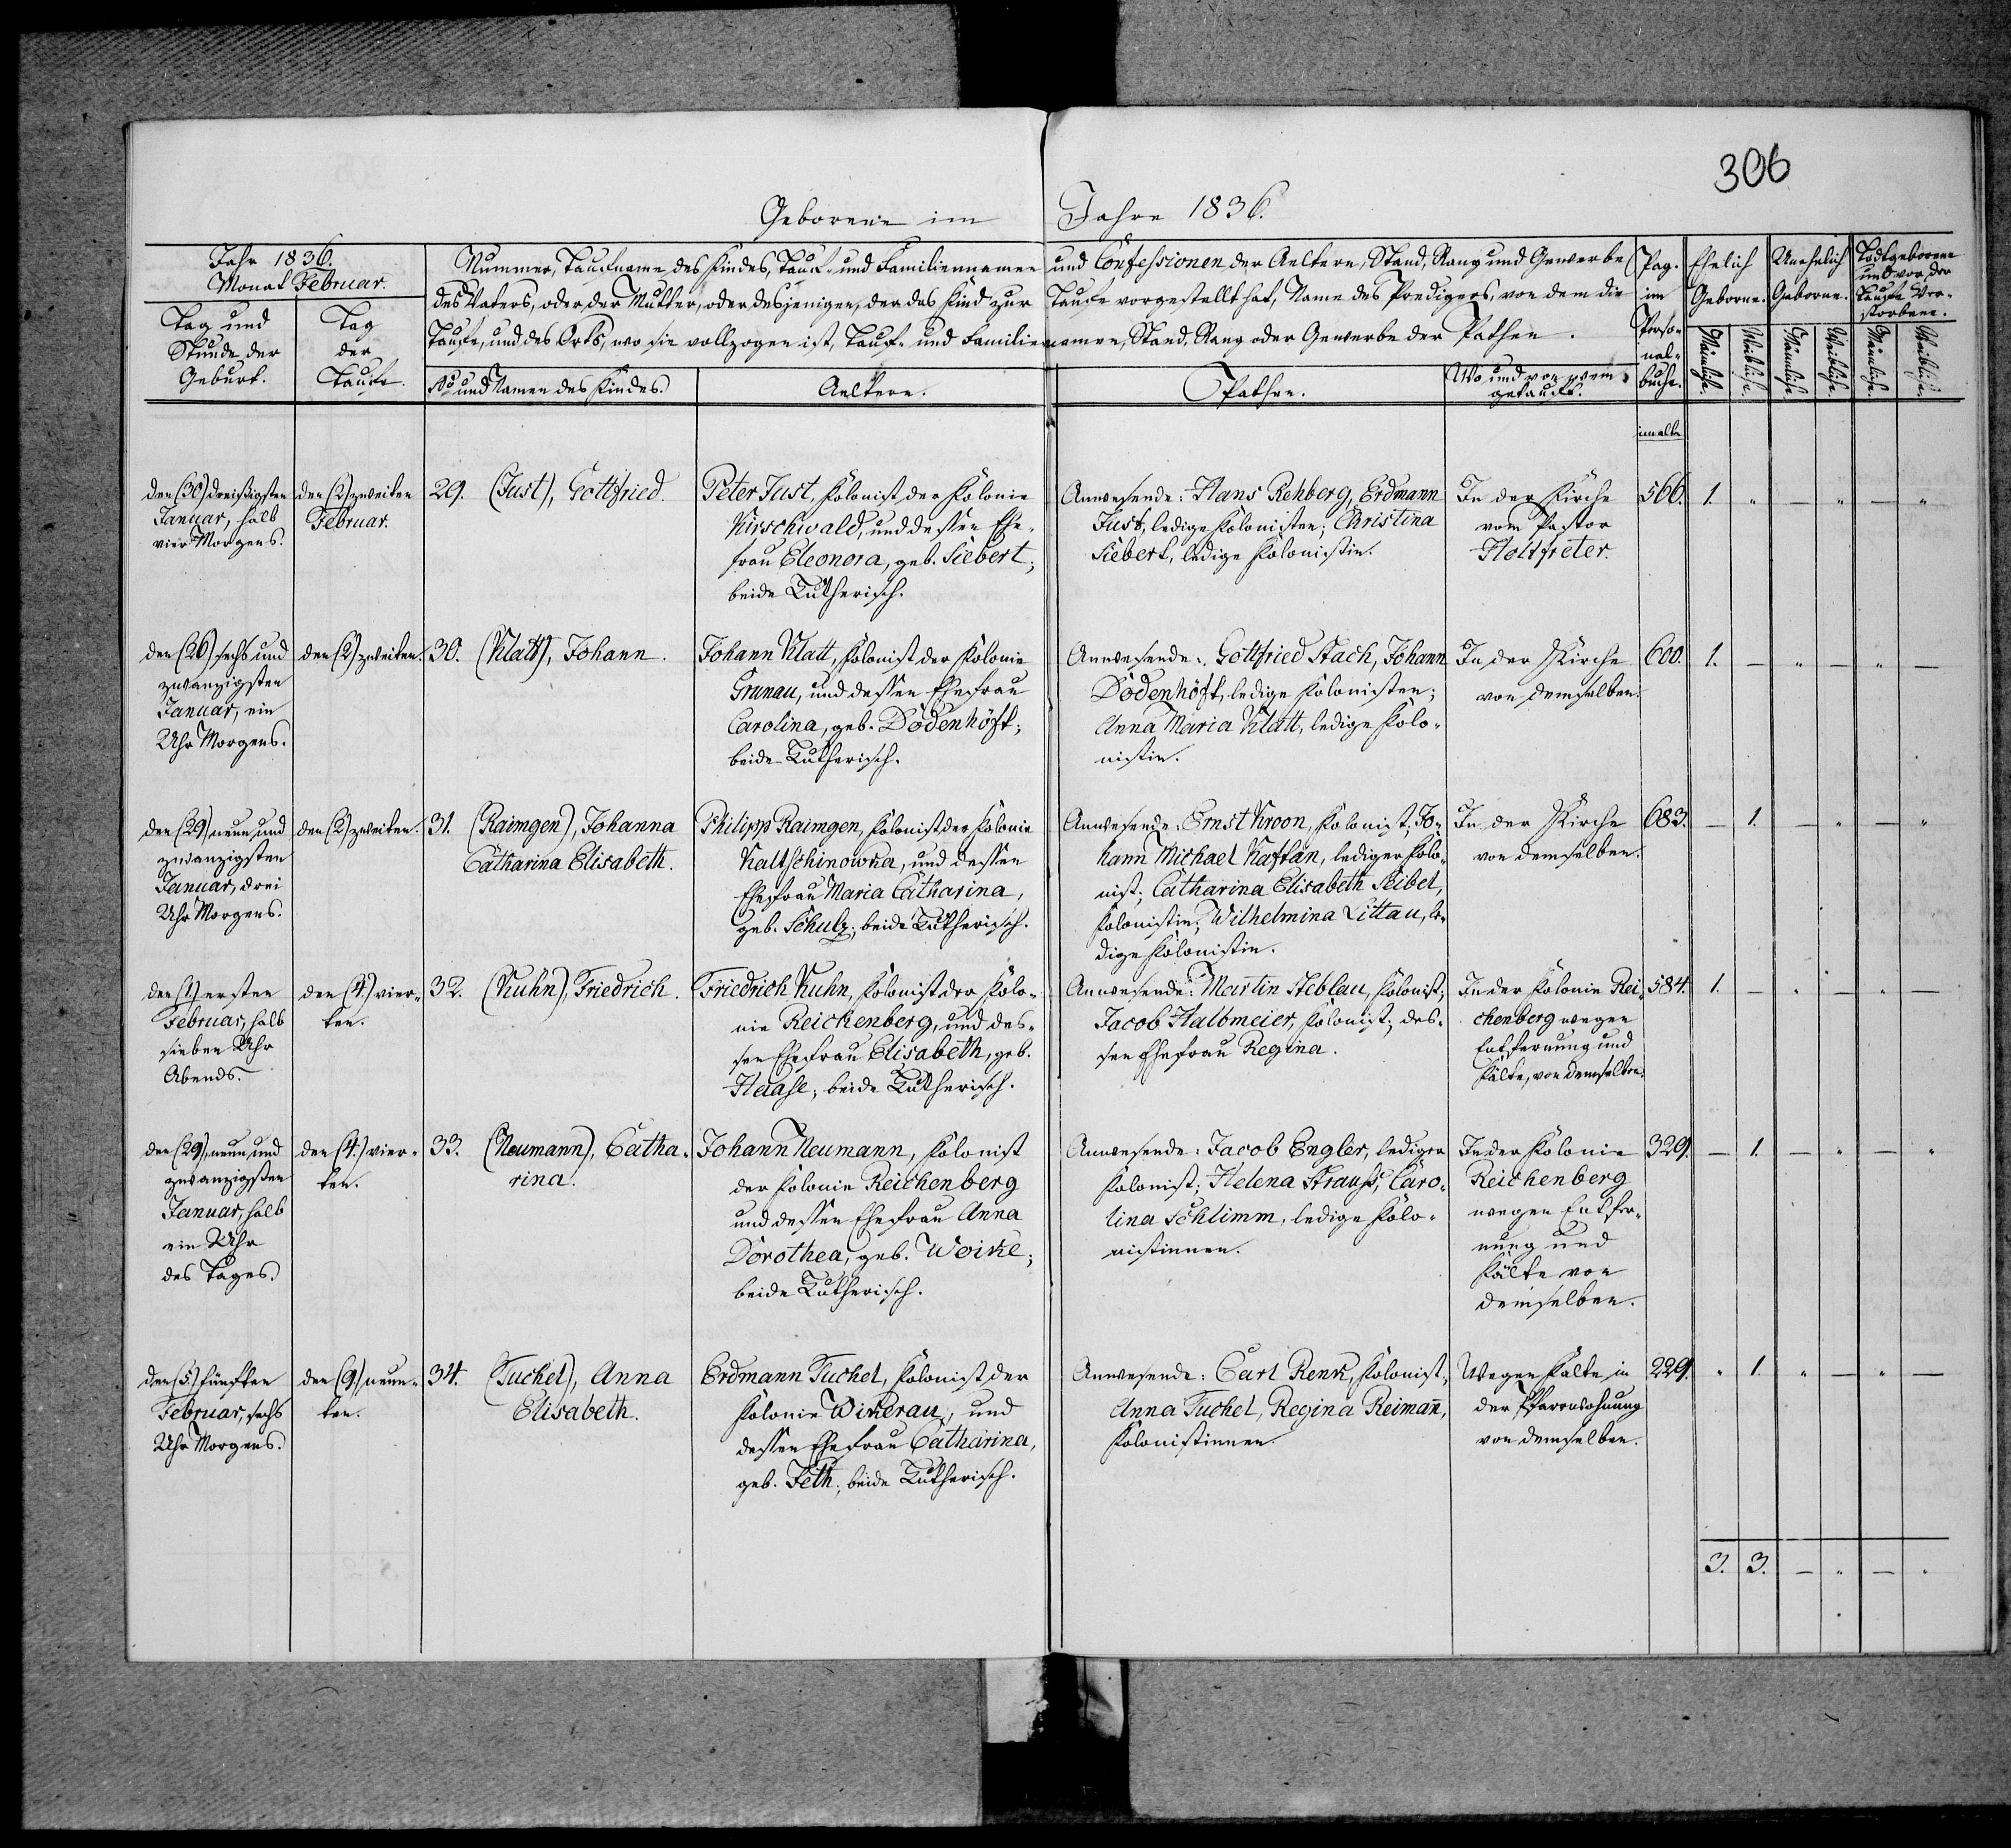 306
Geborene im Jahre 1836.
Jahr 1836.
Monat Februar.
Tag und
Stunde der
Geburt.
Tag
der
Taufe.
Nummer, Taufname des Kindes, Tauf- und Familiennamen und Confessionen der Aeltern, Stand, Rang und Gewerbe
des Vaters, oder der Mutter, oder desjenigen, der das Kind zur Taufe vorgestellt hat, Name des Predigers, von dem die
Taufe, und des Orts, wo sie vollzogen ist, Tauf- und Familiennamen, Stand, Rang oder Gewerbe der Pathen.
No und Namen des Kindes.
Aeltern.
Pathen.
Wo und von wem
getauft.
Pag.
im
Perso-
nal-
buche.
Ehelich
Geborne.
Unehelich
Geborne.
Todtgeborene
und vor der
Taufe Ver-
storbene.
Männliche.
Weibliche.
Männliche.
Weibliche.
Männliche.
Weibliche.
den (30) dreißigsten
Januar, halb
vier Morgens.
den (2) zweiten
Februar.
29. (Just), Gottfried.
Peter Just, Kolonist der Kolonie
Kirschwald, und dessen Ehe-
frau Eleonora, geb. Siebert;
beide Lutherisch.
Anwesende: Hans Rehberg, Erdmann
Just, ledige Kolonisten; Christina
Siebert, ledige Kolonistin.
In der Kirche
vom Pastor
Holtfreter.
566. 1. " — " — "
den (26) sechs und
zwanzigsten
Januar, ein
Uhr Morgens.
den (2) zweiten.
30. (Klatt), Johann.
Johann Klatt, Kolonist der Kolonie
Grunau, und dessen Ehefrau
Carolina, geb. Dodenhöft;
beide Lutherisch.
Anwesende: Gottfried Stach, Johann
Dodenhöft, ledige Kolonisten;
Anna Maria Klatt, ledige Kolo-
nistin.
In der Kirche
von demselben.
600. 1. — " — " —
den (29) neun und
zwanzigsten
Januar, drei
Uhr Morgens.
den (2) zweiten.
31. (Raimgen), Johanna
Catharina Elisabeth.
Philipp Raimgen, Kolonist der Kolonie
Kaltschinowka, und dessen
Ehefrau Maria Catharina,
geb. Schulz; beide Lutherisch.
Anwesende: Ernst Kroon, Kolonist; Jo-
hann Michael Kaftan, lediger Kolo-
nist; Catharina Elisabeth Seibel,
Kolonistin; Wilhelmina Littau, le-
dige Kolonistin.
In der Kirche
von demselben.
683. — 1. — " — "
den (1) ersten
Februar, halb
sieben Uhr
Abends.
den (4) vier-
ten.
32. (Kuhn), Friedrich.
Friedrich Kuhn, Kolonist der Kolo-
nie Reichenberg, und des-
sen Ehefrau Elisabeth, geb.
Haase; beide Lutherisch.
Anwesende: Martin Steblau, Kolonist;
Jacob Halbmeier, Kolonist; des-
sen Ehefrau Regina.
In der Kolonie Rei-
chenberg wegen
Entfernung und
Kälte, von demselben.
584. 1. — " — " —
den (29) neun und
zwanzigsten
Januar, halb
ein Uhr
des Tages.
den (4.) vier-
ten.
33. (Neumann), Catha-
rina.
Johann Neumann, Kolonist
der Kolonie Reichenberg
und dessen Ehefrau Anna
Dorothea, geb. Woike;
beide Lutherisch.
Anwesende: Jacob Engler, lediger
Kolonist; Helena Strauß, Caro-
lina Schlimm, ledige Kolo-
nistinnen.
In der Kolonie
Reichenberg
wegen Entfer-
nung und
Kälte von
demselben.
329. — 1. — " — "
den (5.) fünften
Februar, sechs
Uhr Morgens.
den (9) neun-
ten.
34. (Tuchel), Anna
Elisabeth.
Erdmann Tuchel, Kolonist der
Kolonie Wikerau, und
dessen Ehefrau Catharina,
geb. Feth; beide Lutherisch.
Anwesende: Carl Renk, Kolonist;
Anna Tuchel, Regina Reimañ,
Kolonistinnen.
Wegen Kälte in
der Pfarrwohnung
von demselben.
229. " 1. " — " —
3. 3. — " — "